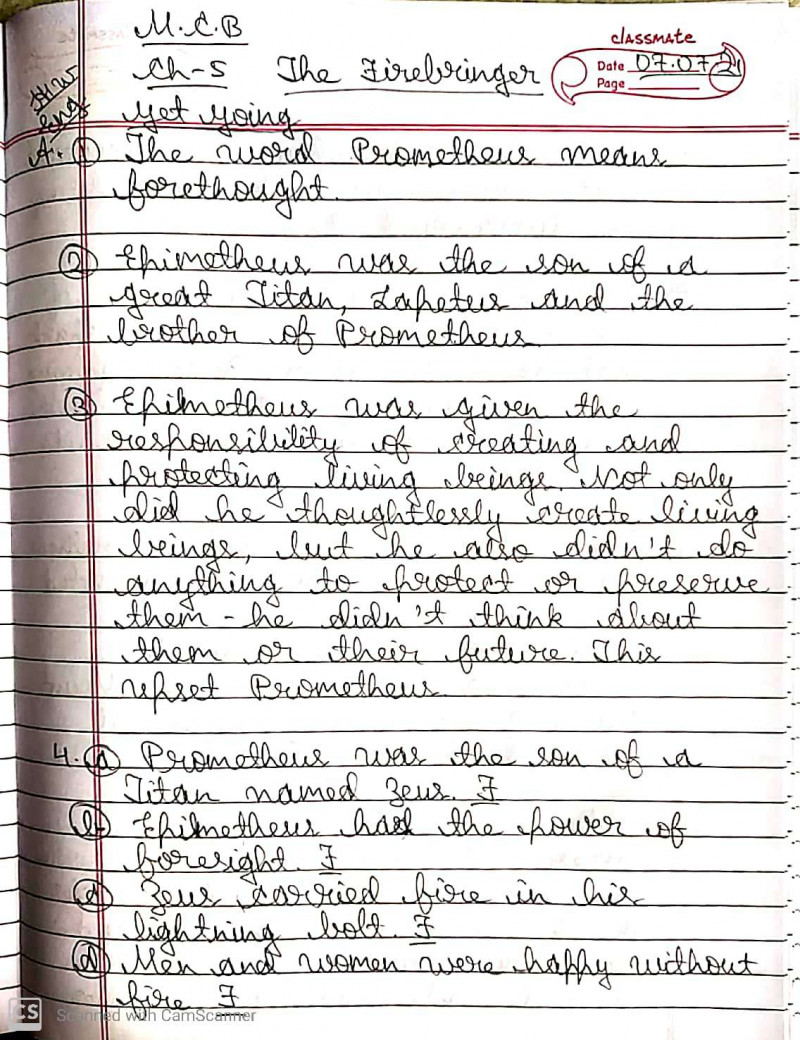 M.C.B
classmate
Ch-5 The Firebringer
Date 07.07.21
Page
H.W
eng
Get going
A. 1 The word Prometheus means
forethought.
2 Epimetheus was the son of a
great Titan, Iapetus and the
brother of Prometheus
3 Epimetheus was given the
responsibility of creating and
protecting living beings. Not only
did he thoughtlessly create living
beings, but he also didn't do
anything to protect or preserve
them - he didn't think about
them or their future. This
upset Prometheus
4. a Prometheus was the son of a
Titan named Zeus. F
b Epimetheus had the power of
foresight. F
c Zeus carried fire in his
lightning bolt. F
d Men and women were happy without
fire F
CS Scanned with CamScanner